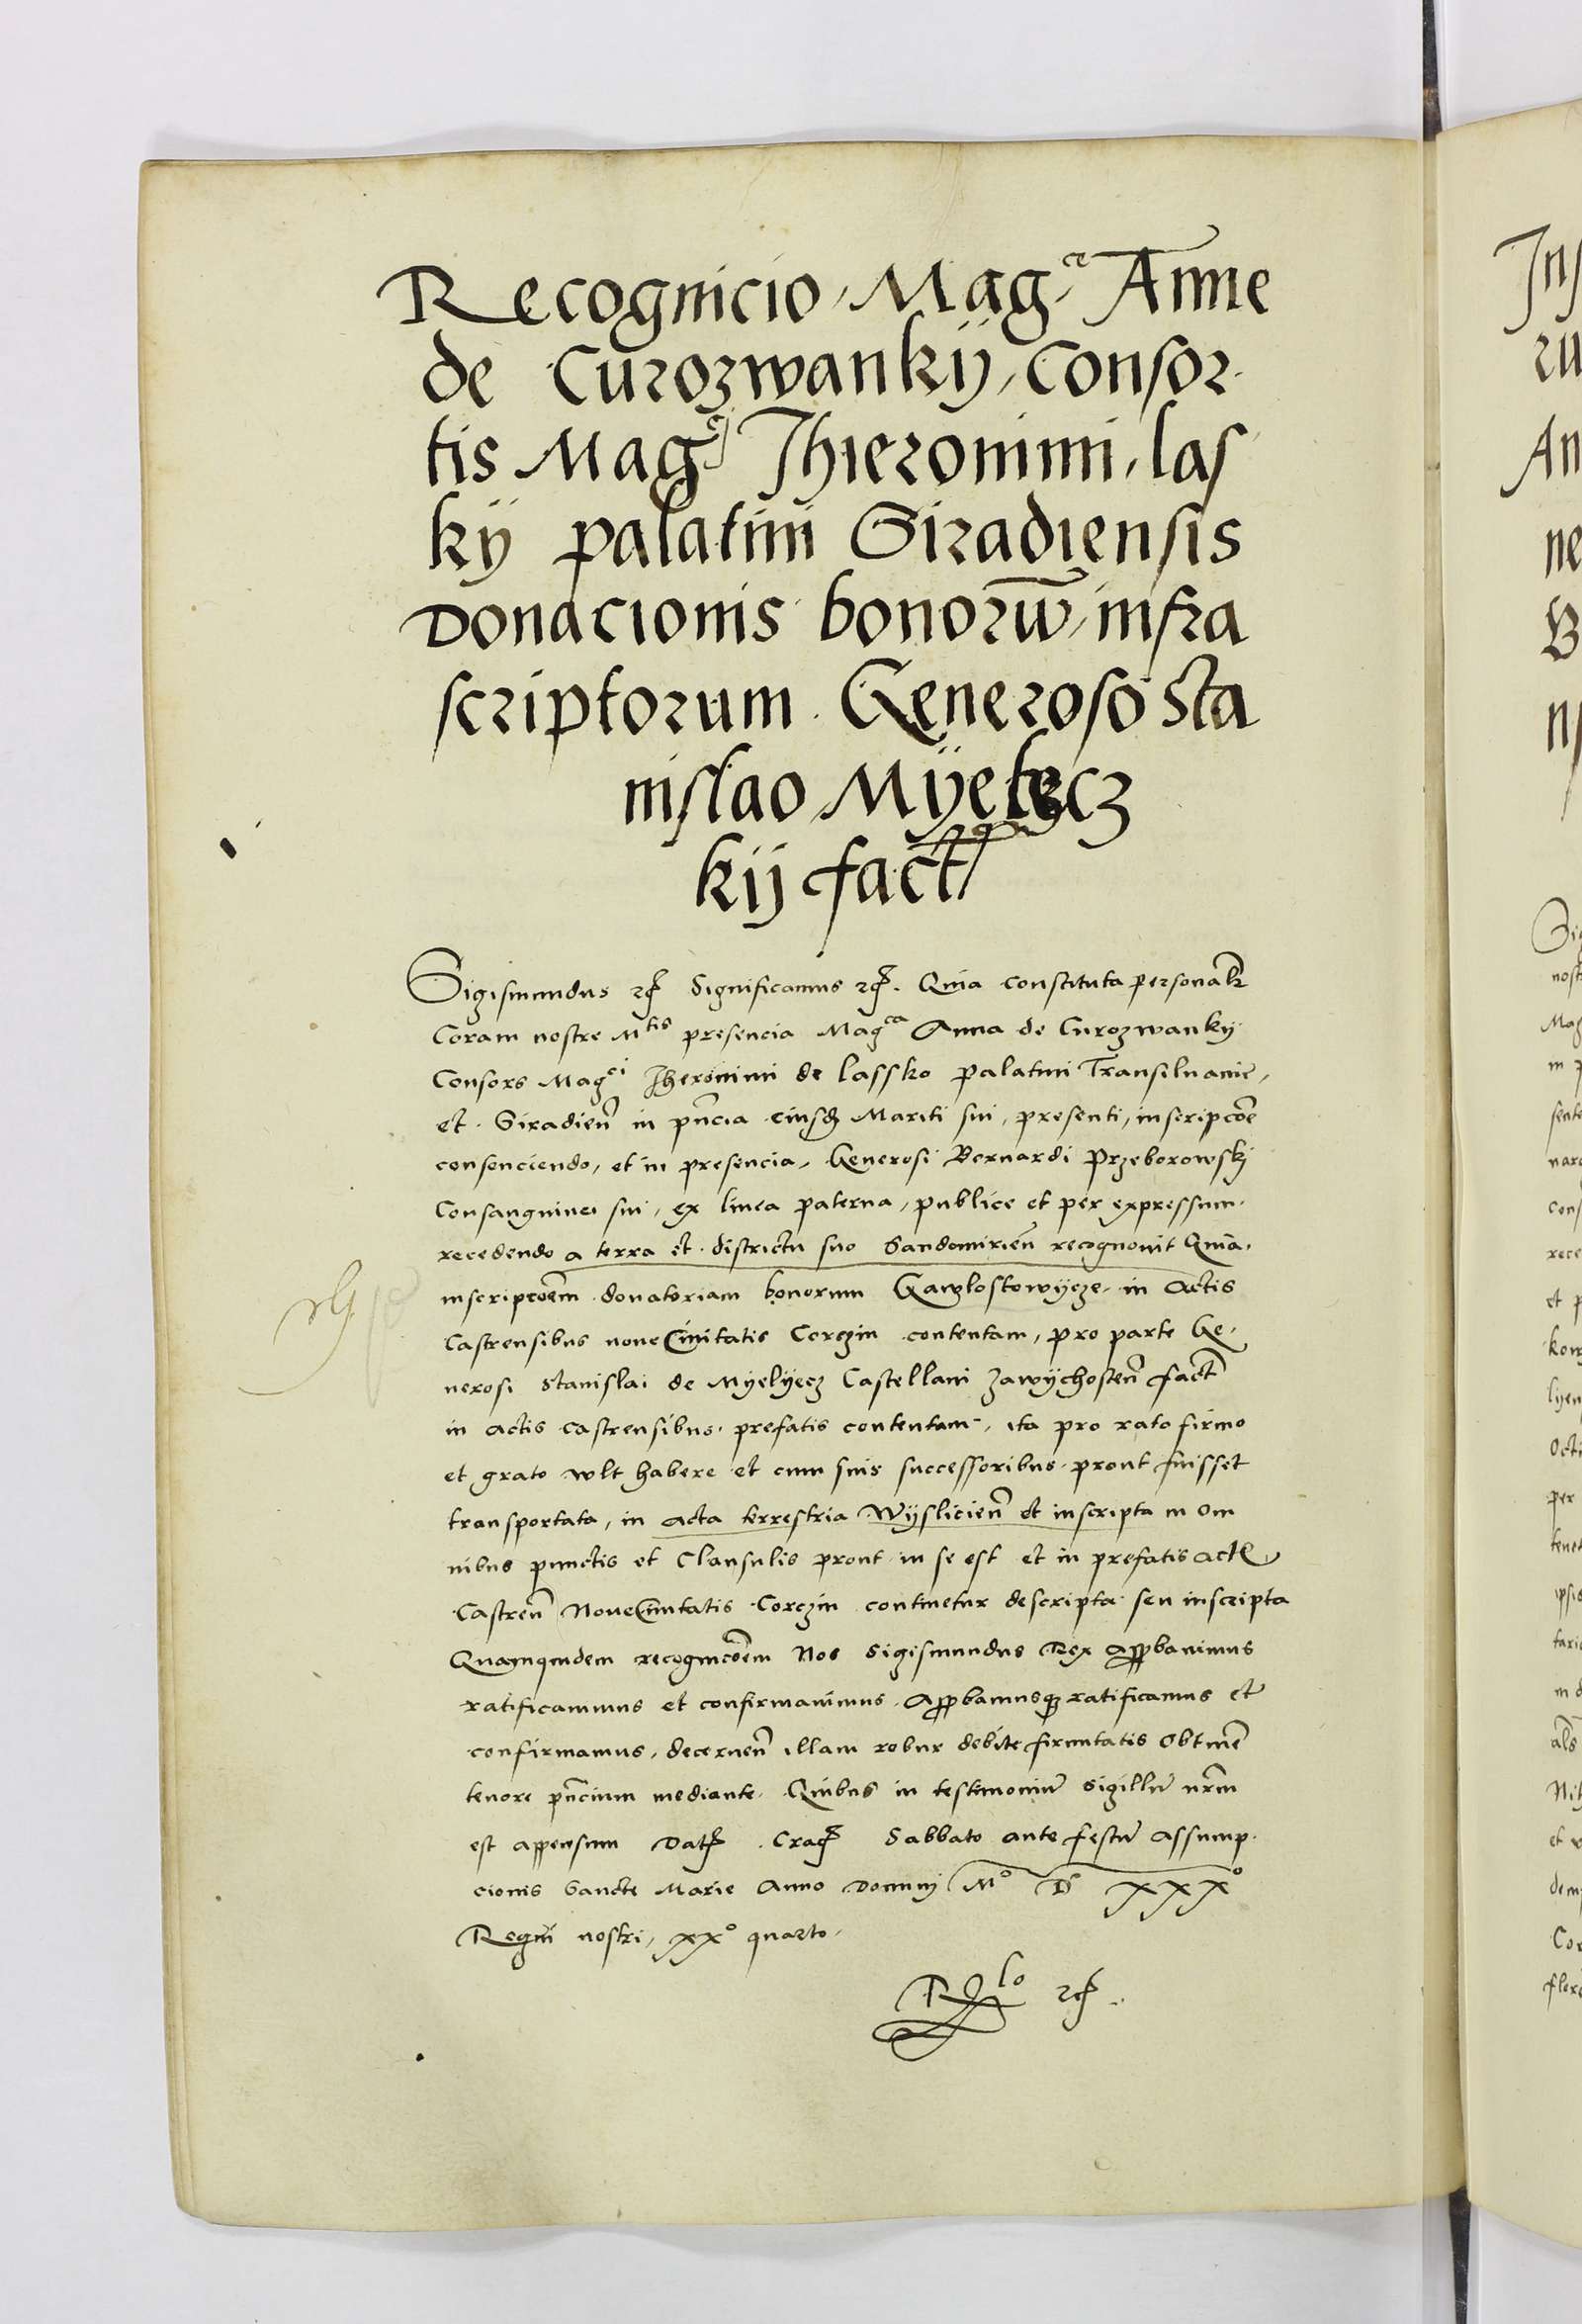 Recognicio Mag^ce Anne
de Curozwankÿ, Consor
tis Mag^ci Jhieronimi, las
kÿ palatini Siradiensis
Donacionis bonorũ, infra
scriptorum. Generoso Sta
nislao Mÿelecz
kÿ fact
Sigismundus rc Significamus rc. Quia constituta personalr
Coram nostre M^tis presencia Mag^ca Anna de Curozwankÿ
Consors Mag^ci Jheronimi de lassko palatini Transiluanie,
et Siradien̄ in pn̄cia eiusd Mariti sui, presenti, inscripcōe
consenciendo, et in presencia, Generosi Bernardi Przeborowskj
Consanguinei sui, ex linea paterna, publice et per expressum
recedendo a terra et districtu suo Sandomirien̄ recognouit Quia
inscripcōem donatoriam bonorum Gawlostowÿcze in Actis
Castrensibus noue Ciuitatis Corczin contentam, pro parte Ge
nerosi Stanislai de Mÿelÿecz Castellani Zawÿchosten̄ fact
in actis castrensibus prefatis contentam, ita pro rato firmo
et grato wlt habere et cum suis successoribus prout fuisset
transportata, in acta terrestria Wÿslicien̄ et inscripta in om
nibus punctis et Clausulis prout in se est et in prefatis act
Castren̄ Noue Ciuitatis Corczin continetur descripta seu inscripta
Quamquidem recognicōem Nos Sigismundus Rex appbauimus
ratificauimus et confirmauimus. Appbamusqz ratificamus et
confirmamus, decernen̄ illam robur debite firmitatis Obtinē
tenore pn̄cium mediante. Quibus in testimoniū sigillū nr̄m
est appensum Dat Crac Sabbato ante festū Assump
cionis Sancte Marie Anno Dominj M° D xxx°
Regni nostri, xx° quarto
Rlo rc.